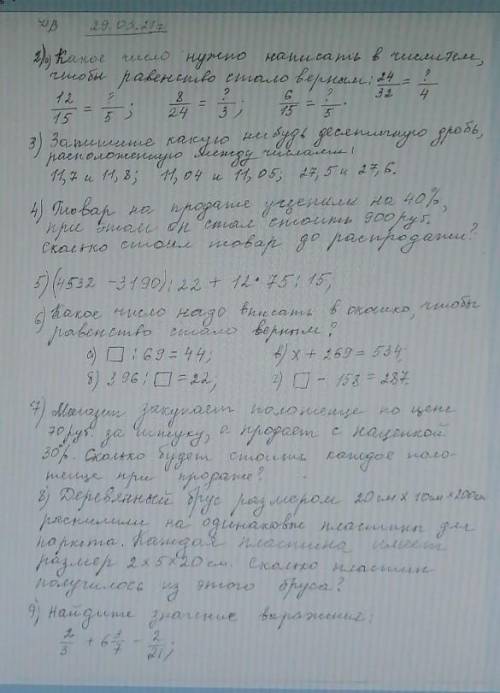 29.03.217
2) Какое число нужно написать в числителе,
чтобы равенство стало верным: 24/32 = ?/4
12/15 = ?/5; 8/24 = ?/3; 6/15 = ?/5.
3) Запишите какую нибудь десятичную дробь,
расположенную между числами:
11,7 и 11,8; 11,04 и 11,05; 27,5 и 27,6.
4) Товар на продаже уценили на 40%,
при этом он стал стоить 900 руб.
Сколько стоил товар до распродажи?
5) (4532 - 3190) : 22 + 12 · 75 : 15;
6) Какое число надо вписать в окошко, чтобы
равенство стало верным?
а) □ : 69 = 44; в) x + 269 = 534;
б) 396 : □ = 22; г) □ - 158 = 287.
7) Магазин закупает полотенце по цене
70 руб. за штуку, а продаёт с наценкой
Сколько будет стоить каждое поло-
тенце при продаже?
8) Деревянный брус размером 20см x 10см x 200см
распилили на одинаковые пластины для
паркета. Каждая пластина имеет
размер 2 x 5 x 20 см. Сколько пластин
получилось из этого бруса?
9) Найдите значение выражения: